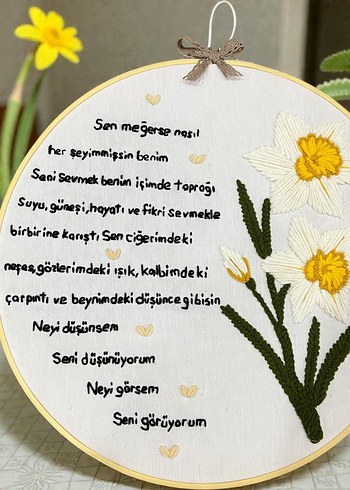 Sen meğerse nasıl
her şeyimmişsin benim
Seni Sevmek benim içimde toprağı
Suyu, güneşi, hayatı ve fikri sevmekle
birbirine karıştı Sen ciğerimdeki
nefes, gözlerimdeki ışık, kalbimdeki
çarpıntı ve beynimdeki düşünce gibisin
Neyi düşünsem
Seni düşünüyorum
Neyi görsem
Seni görüyorum